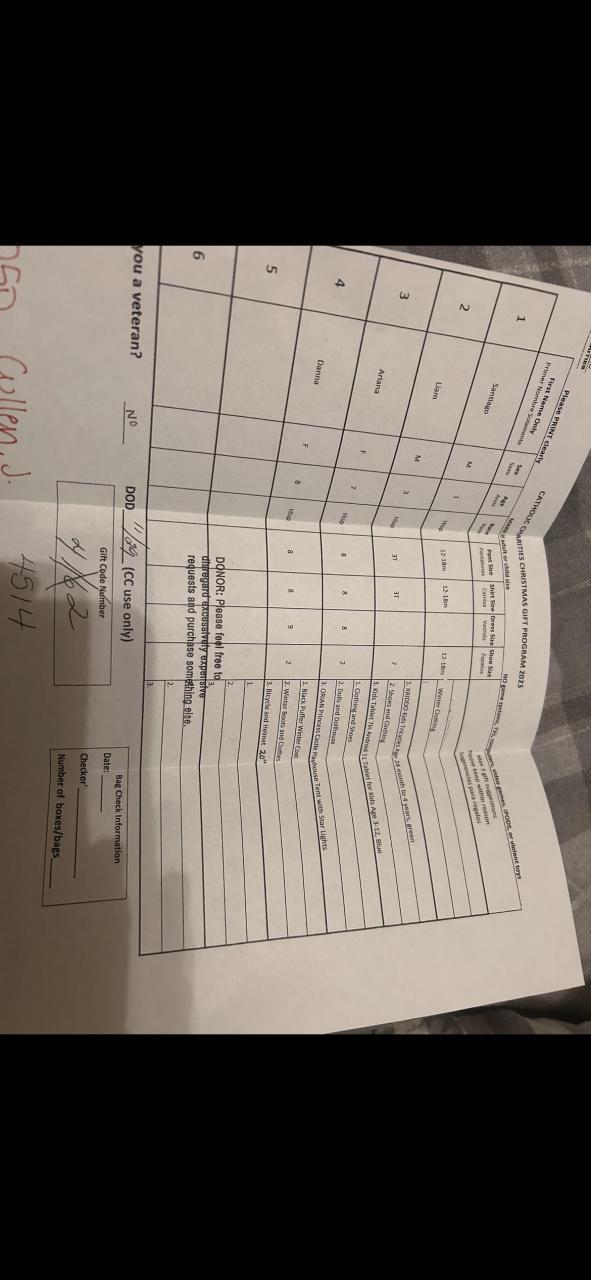 CATHOLIC CHARITIES CHRISTMAS GIFT PROGRAM 2023
Please PRINT clearly
First Name Only
Primer Nombre Solamente
Sex
Sexo
Age
Anos
Race
if adult or child size
Pant Size
Pantalones
Shirt Size
Camisa
Dress Size
Vestido
Shoe Size
Zapatos
NO game systems, TVs, computers, video games, IPODS, or violent toys
Make 3 gift suggestions
Please keep within reason
Sugerencias para regalos
1 Santiago M 1 Hisp 12-18m 12-18m 12-18m
Winter Clothing
2 Liam M 3 Hisp 3T 3T 7
1. KRIDDO Kids Tricycles Age 24 month to 4 years, green
2. Shoes and Clothing
3. Kids Tablet 7in Android 11 Tablet for Kids Age 3-12, Blue
3 Ariana F 7 Hisp 8 8 8 2
1. Clothing and Shoes
2. Dolls and Dollhouse
3. ORIAN Princess Castle Playhouse Tent with Star Lights
4 Danna F 8 Hisp 8 8 9 2
1. Black Puffer Winter Coat
2. Winter Boots and Clothes
3. Bicycle and Helmet 20"
5
1.
2.
3.
6
1.
2.
3.
DONOR: Please feel free to
disregard excessively expensive
requests and purchase something else.
you a veteran? NO DOD 11/29 (CC use only)
Gift Code Number
2162
Bag Check Information
Date:
Checker'
Number of boxes/bags
4514